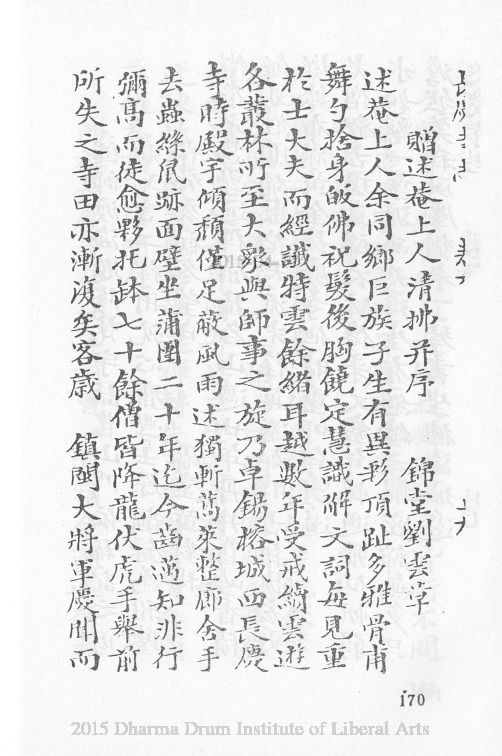 贈述菴上人清拂并序　錦堂劉雲草
述菴上人余同鄉巨族子生有異彩頂趾多雅骨甫
舞勺捨身皈佛祝髮後胸饒定慧識解文詞每見重
於士大夫而經讖特雲餘緒耳越數年受戒緇雲遊
各叢林所至大衆與師事之旋乃卓錫榕城西長慶
寺時殿宇傾頹僅足蔽風雨述獨斬蒿萊整廊舍手
去蟲絲鼠跡面壁坐蒲團二十年迄今齒邁知非行
彌高而徒愈夥托缽七十餘僧皆降龍伏虎手舉前
所失之寺田亦漸復矣客歲　鎮閩大將軍慶聞而
170
2015 Dharma Drum Institute of Liberal Arts